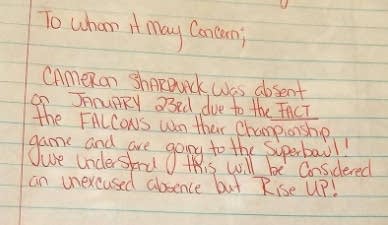 To whom it May Concern;
CAMERON SHARDWICK was absent
on JANUARY 23rd due to the FACT
the FALCONS won their Championship
game and are going to the Superbowl!
We understand this will be Considered
an unexcused absence but RISE UP!